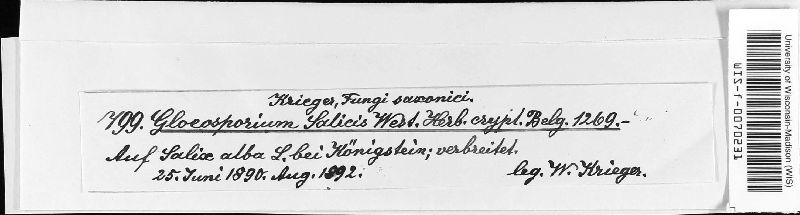 Krieger, Fungi saxonici.
799. Gloeosporium Salicis West. Herb. crypt. Belg. 1269.-
Auf Salix alba L. bei Königstein; verbreitet.
25. Juni 1890. Aug. 1892. leg. W. Krieger.
University of Wisconsin-Madison (WIS)
WIS-f-0070231